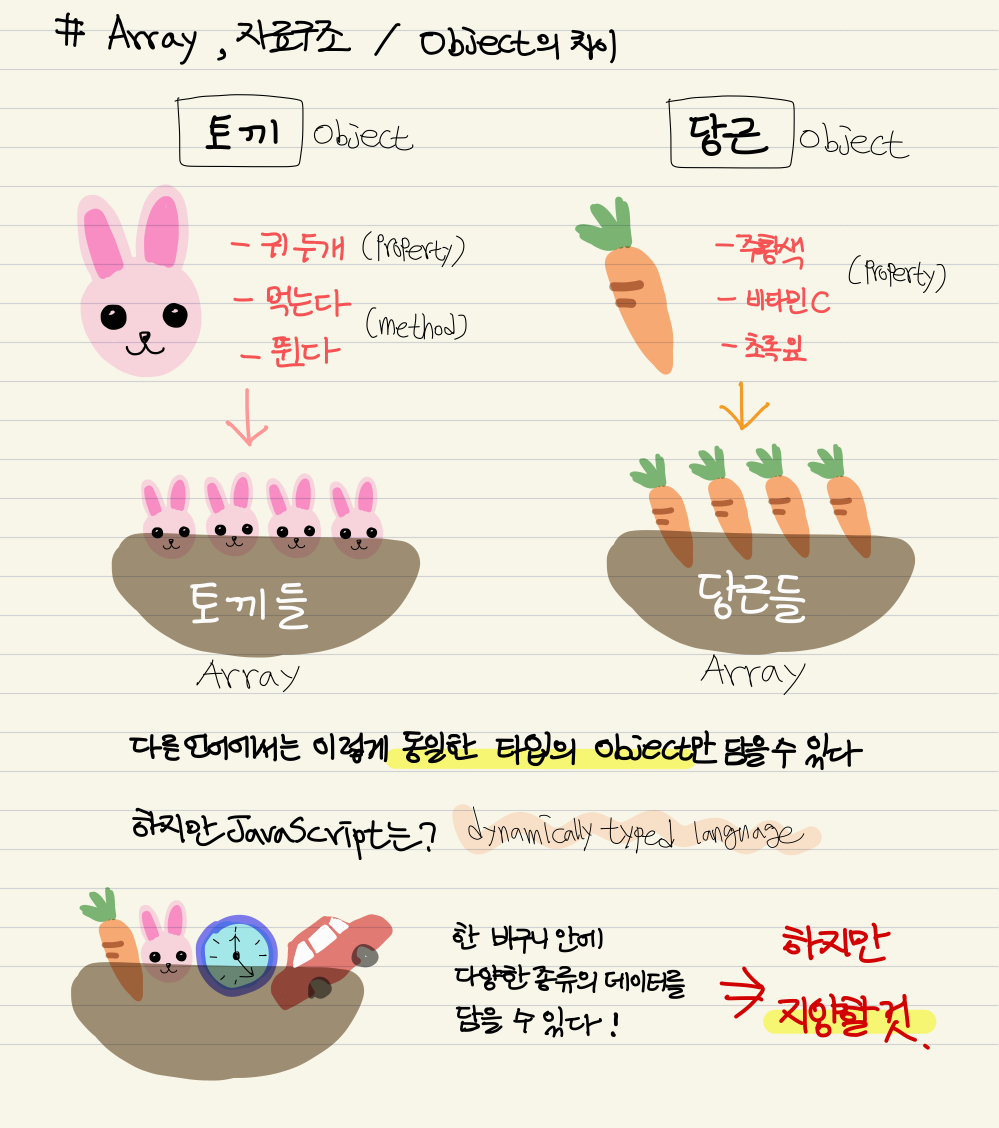 # Array, 자료구조 / Object의 차이
토끼 Object
당근 Object
- 귀 두개 (Property)
- 먹는다
- 뛴다
(method)
- 주황색
- 비타민 C
- 초록잎
(Property)
토끼들
Array
당근들
Array
다른 언어에서는 이렇게 동일한 타입의 Object만 담을 수 있다
하지만 JavaScript는? dynamically typed language
한 바구니 안에
다양한 종류의 데이터를
담을 수 있다!
하지만
지양할 것.